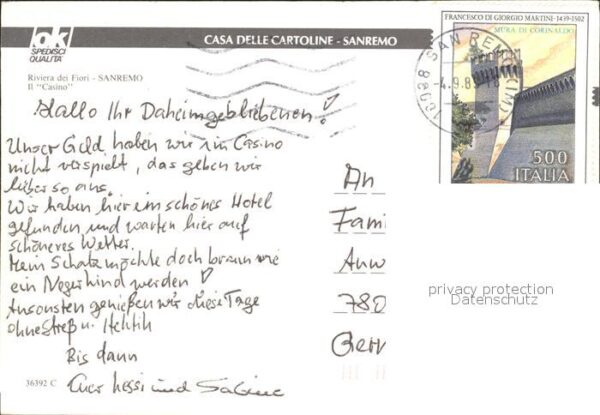 ok
SPEDISCI
QUALITA'
CASA DELLE CARTOLINE - SANREMO
Riviera dei Fiori - SANREMO
Il "Casino"
FRANCESCO DI GIORGIO MARTINI · 1439-1502
MURA DI CORINALDO
500
ITALIA
18038 SANREMO (IM)
Hallo Ihr Daheimgebliebenen!
Unser Geld haben wir im Casino
nicht verspielt, das geben wir
lieber so aus.
Wir haben hier ein schönes Hotel
gefunden und warten hier auf
schöneres Wetter.
Mein Schatz möchte doch braun wie
ein Negerkind werden
Ansonsten genießen wir diese Tage
ohne Streß u. Hektik
Bis dann
Euer Hessi und Sabine
An
Fami
Anw
780
Gerr
privacy protection
Datenschutz
36392 C